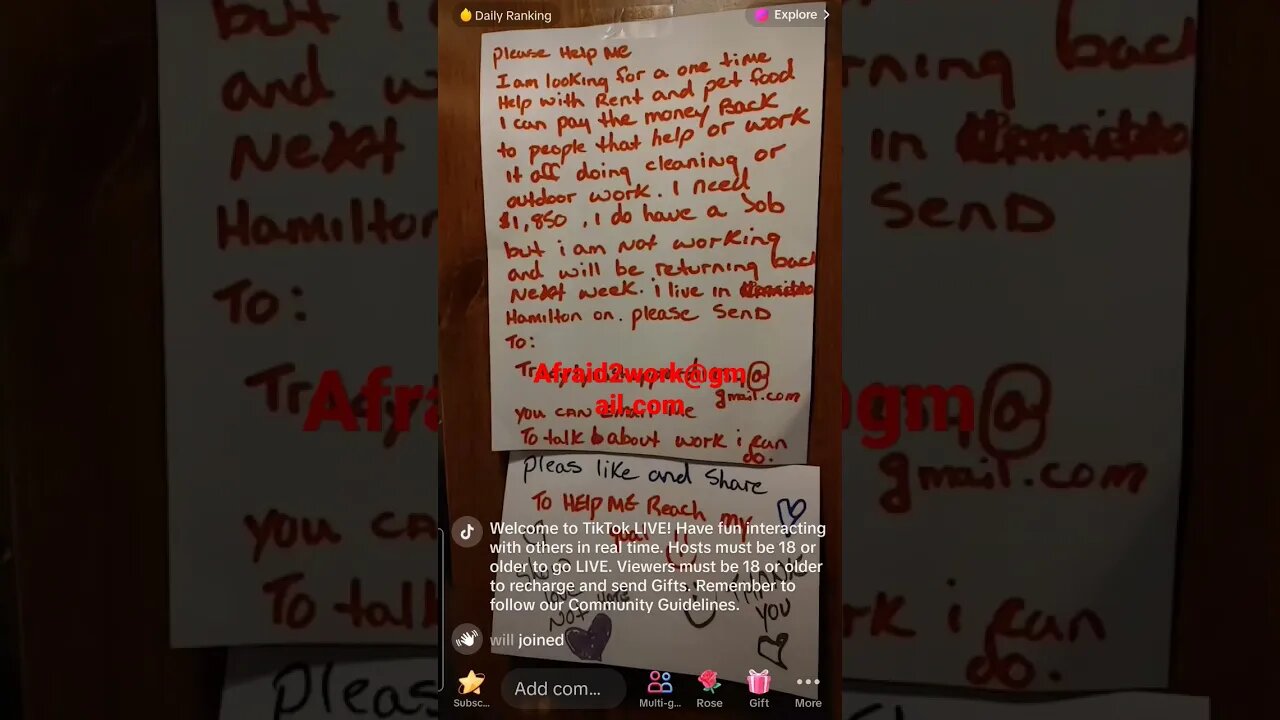 Daily Ranking
Explore >
Please Help Me
I am looking for a one time
Help with Rent and pet food
I can pay the money Back
to people that help or work
it off doing cleaning or
outdoor work. I need
$1,850, I do have a Job
but i am not working
and will be returning back
Next week. i live in
Hamilton on. please SenD
To:
Afraid2work@gm
ail.com
@
gmail.com
you can Email me
To talk b about work i can
do.
Pleas like and Share
To HELP ME Reach my
goal
Welcome to TikTok LIVE! Have fun interacting
with others in real time. Hosts must be 18 or
older to go LIVE. Viewers must be 18 or older
to recharge and send Gifts. Remember to
follow our Community Guidelines.
Show
Love
NOT HATE
THANK
YOU
will joined
Subsc...
Add com...
Multi-g...
Rose
Gift
More
but i
and w
rning back
Next
in
Hamilton
SenD
To:
@
gmail.com
you can
To talk
rk i can
do.
Pleas